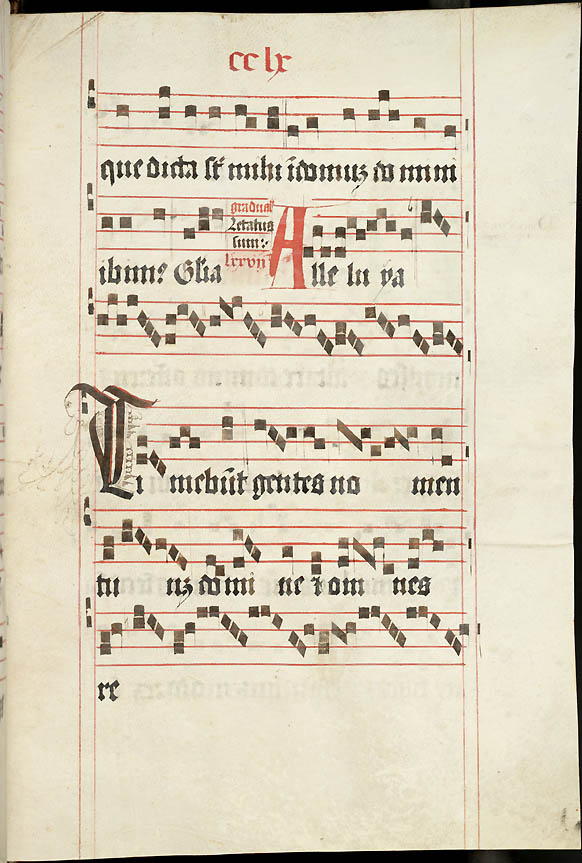 cclx
que dicta st mihi ĩ domuz do mini
ibim9 Glia
gradual
Letatus
sum:
lxxvij
Alle lu ya
Ti mebũt gentes no men
tu uz domi ne ⁊ om nes
re